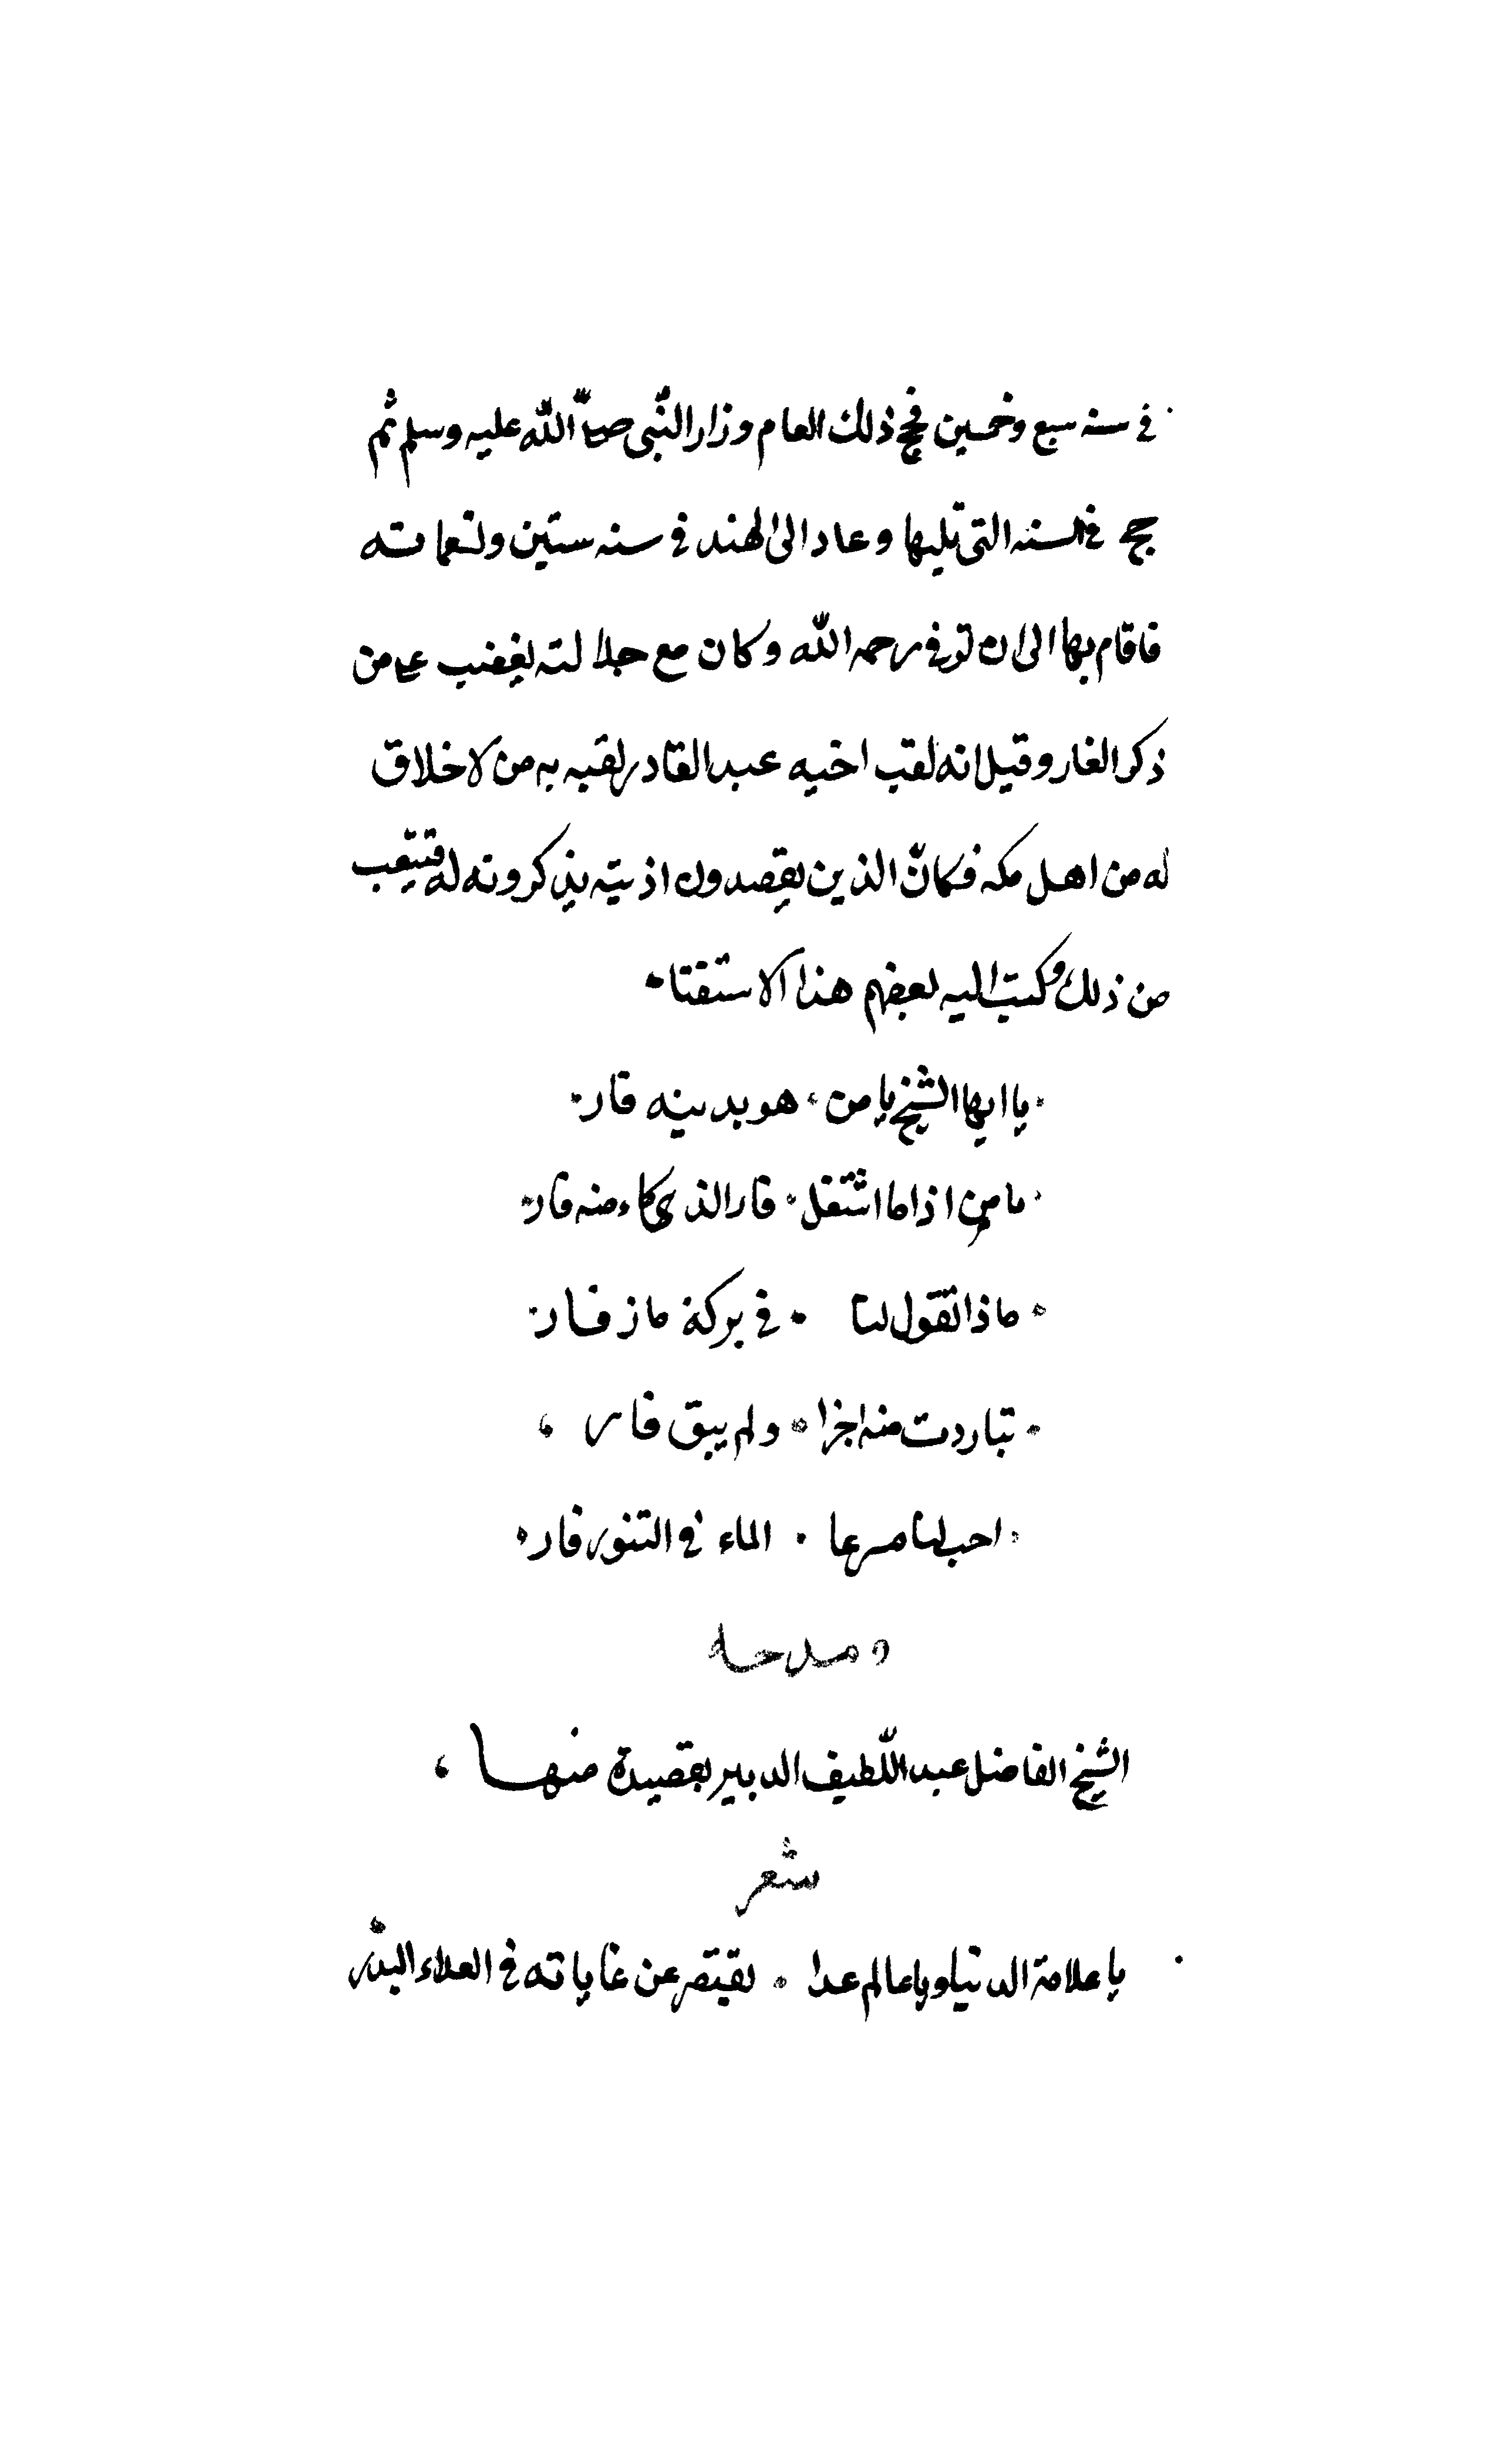 في سنه سبع وخمسين فحج ذلك العام وزار النّبى صلّى اللّٰه عليه وسلم ثم
حج في السنه التى تليها وعاد الى الهند في سنه ستين وتسعمائه
فاقام بها الى ان توفى رحمه اللّٰه وكان مع جلالته يغضب على من
ذكر الفار وقيل انه لقب اخيه عبد القادر لقبه به من لا خلاق
له من اهل مكه فكانّ الذين يقصدون اذيته يذكرونه له فيتعب
من ذلك وكتب اليه بعضهم هذا الاستفتا
يا ايها الشيخ يا من هو بدينه فار
يا من اذا ما اشتغل فار الذكاء منه فار
ماذا تقول لنا في بركة ماز فار
تباردت منه اجزا ولم يبق فار
اجب لنا مسرعا الماء في التنور فار
ومدحه
الشيخ الفاضل عبد اللّطيف الدبير بقصيدة منها
شعر
يا علامة الدنيا ويا عالم عدا يقتصر عن غاياته في العلاء البدر